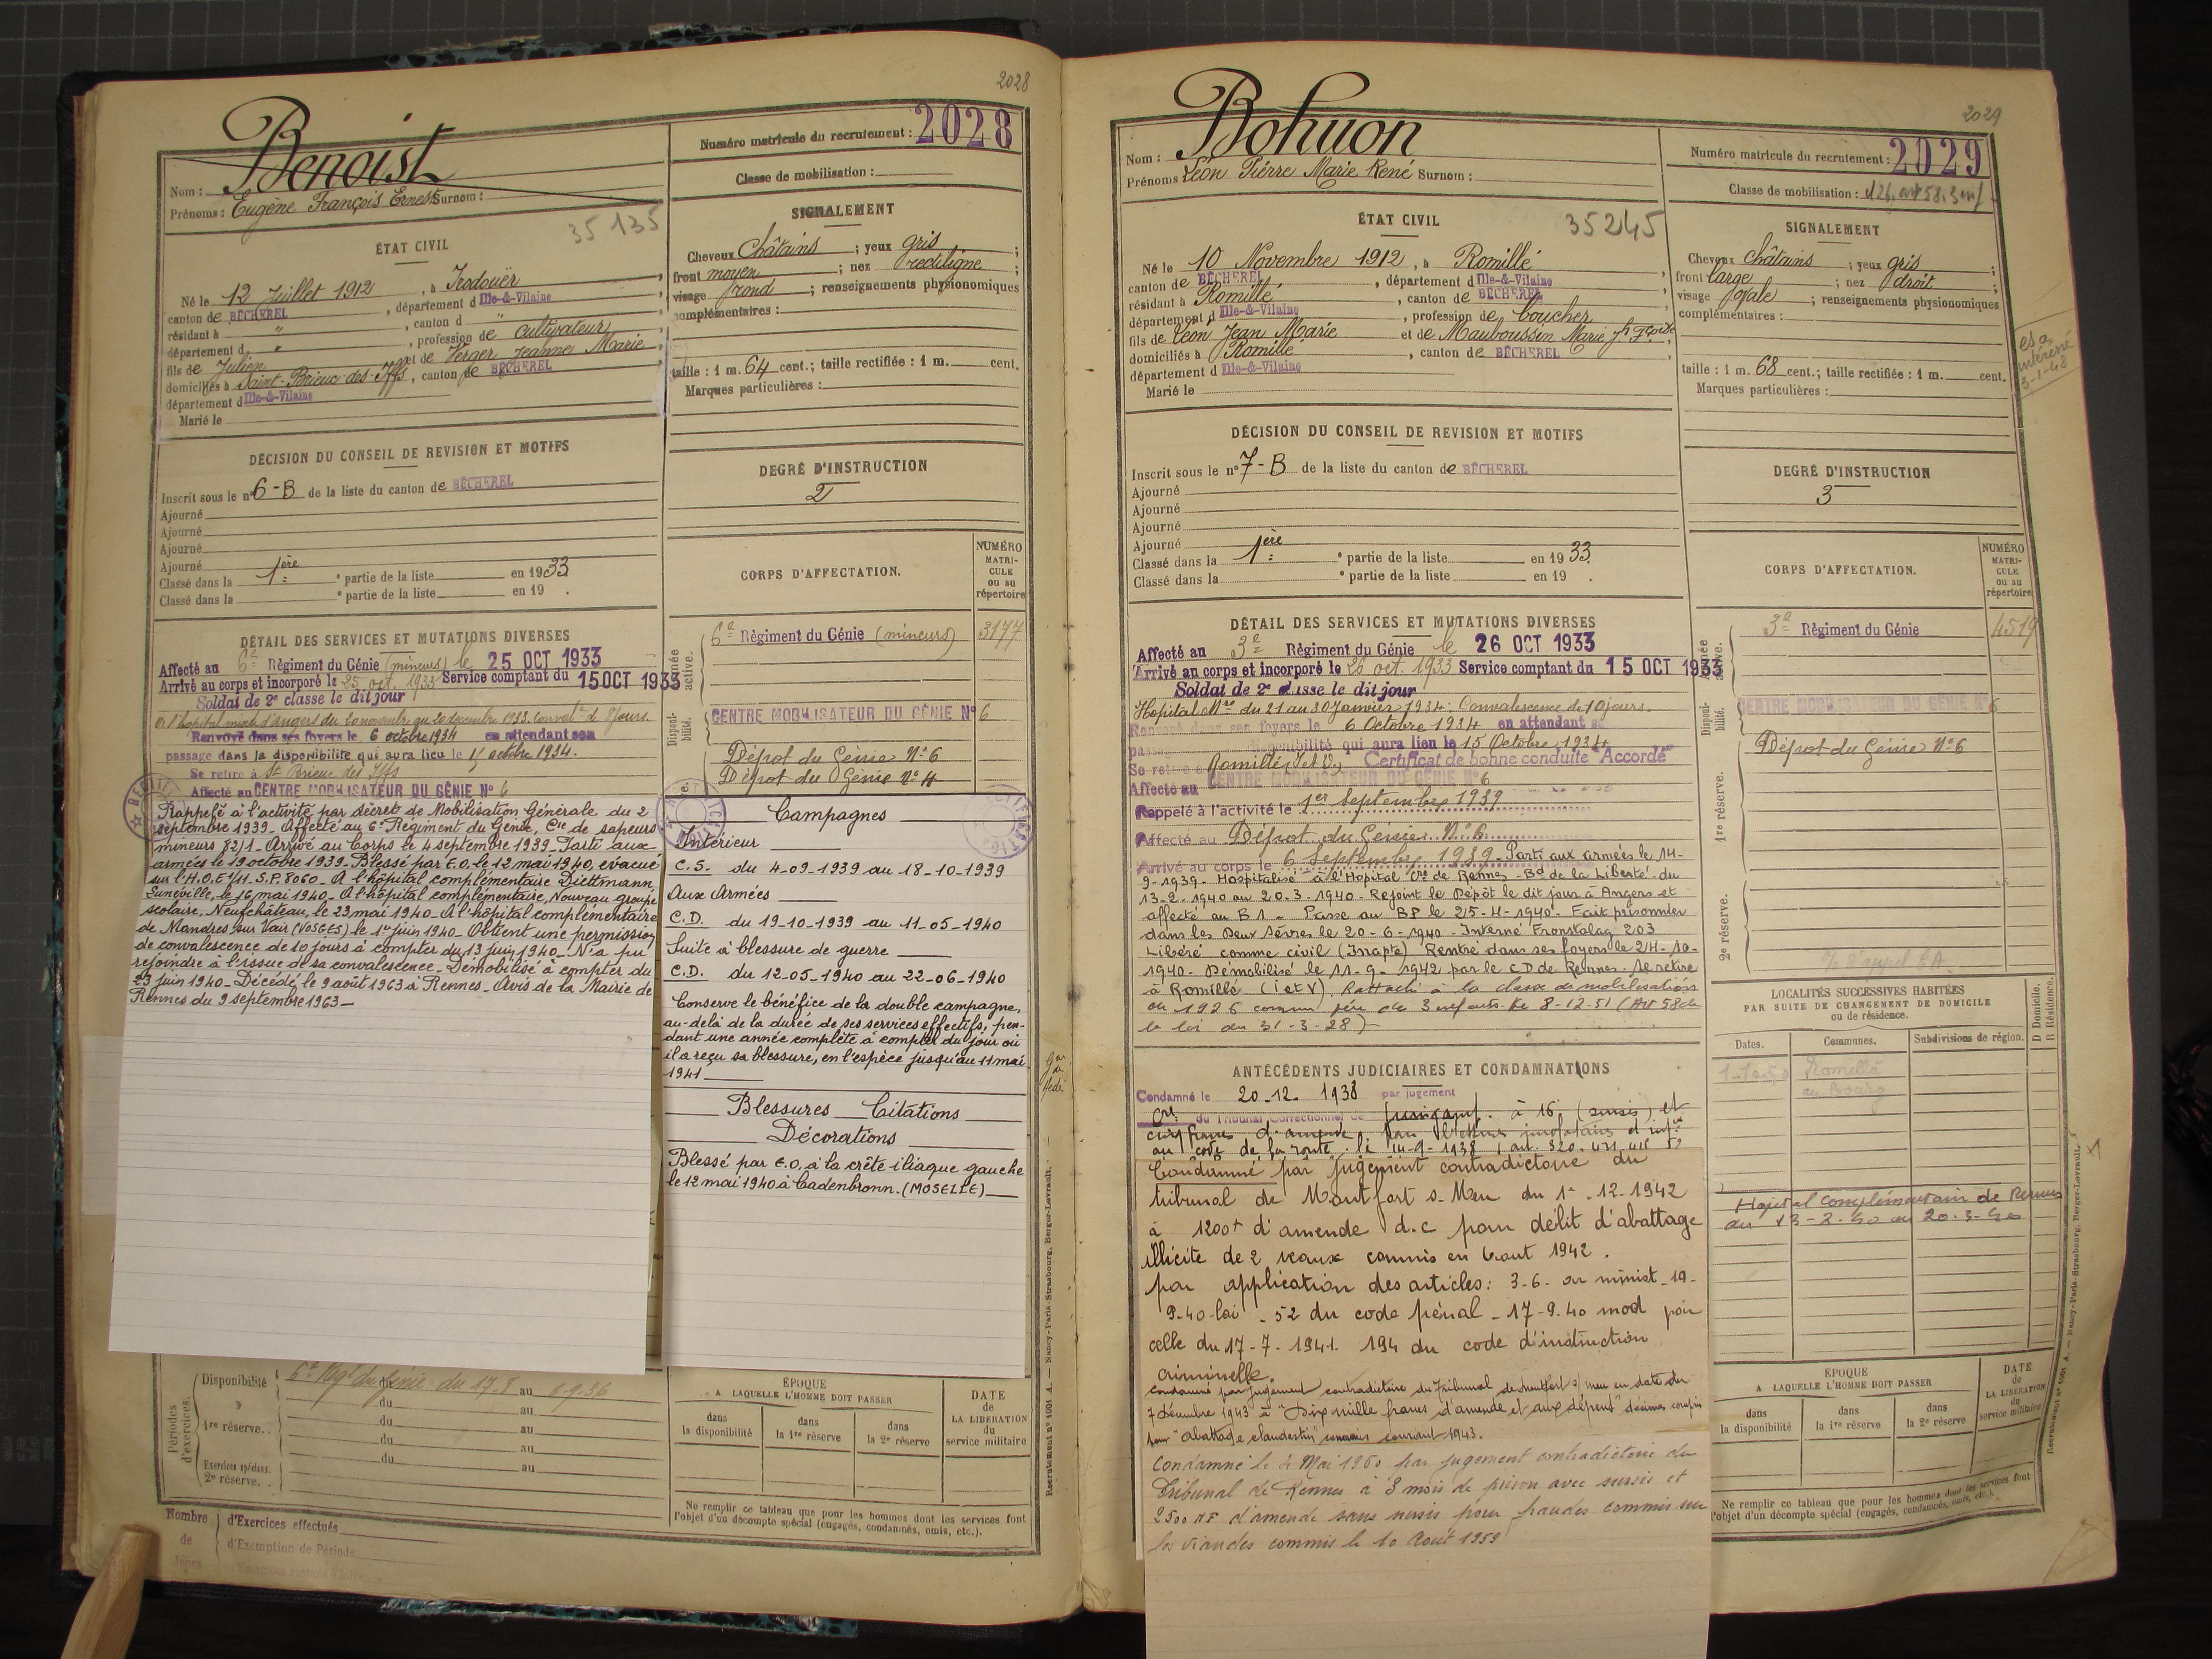 2028
Benoist
Nom :
Prénoms : Eugène François Ernest Surnom :
35 135
ÉTAT CIVIL
Né le 12 Juillet 1912, à Irodouër
canton de BÉCHEREL, département d Ille-&-Vilaine
résidant à ", canton d "
département d ", profession de cultivateur
fils de Julien et de Verger Jeanne Marie
domiciliés à Saint-Brieuc des Iffs, canton de BÉCHEREL
département d Ille-&-Vilaine
Marié le
Numéro matricule du recrutement : 2028
Classe de mobilisation :
SIGNALEMENT
Cheveux Châtains ; yeux gris ;
front moyen ; nez rectiligne ;
visage rond ; renseignements physionomiques
complémentaires :
taille : 1 m. 64 cent.; taille rectifiée : 1 m. cent.
Marques particulières :
DÉCISION DU CONSEIL DE REVISION ET MOTIFS
Inscrit sous le n° 6-B de la liste du canton de BÉCHEREL
Ajourné
Ajourné
Ajourné
Ajourné
Classé dans la 1ère partie de la liste en 1933
Classé dans la partie de la liste en 19 .
DEGRÉ D'INSTRUCTION
2
CORPS D'AFFECTATION.
NUMÉRO
MATRI-
CULE
ou au
répertoire
DÉTAIL DES SERVICES ET MUTATIONS DIVERSES
Affecté au 6e Régiment du Génie (mineurs) le 25 OCT 1933
Arrivé au corps et incorporé le 25 oct. 1933 Service comptant du 15 OCT 1933
Soldat de 2e classe le dit jour
A l'hôpital mixte d'Angers du 20 novembre au 20 décembre 1933. Conval. de 8 jours.
Renvoyé dans ses foyers le 6 octobre 1934 en attendant son
passage dans la disponibilité qui aura lieu le 15 octobre 1934.
Se retire à St Brieuc des Iffs
Affecté au CENTRE MOBILISATEUR DU GÉNIE N° 6
Rappelé à l'activité par décret de Mobilisation Générale du 2
septembre 1939_ Affecté au 6e Régiment du Génie, Cie de sapeurs
mineurs 82/1_ Arrivé au Corps le 4 septembre 1939_ Parti aux
armées le 19 octobre 1939_ Blessé par E.O. le 12 mai 1940, évacué
sur l'H.O.E 1/11. S.P. 8060_ A l'hôpital complémentaire Diettmann,
Lunéville, le 16 mai 1940_ A l'hôpital complémentaire, Nouveau groupe
scolaire, Neufchâteau, le 23 mai 1940_ A l'hôpital complémentaire
de Mandres sur Vair (VOSGES) le 1er juin 1940_ Obtient une permission
de convalescence de 10 jours à compter du 13 juin 1940_ N'a pu
rejoindre à l'issue de sa convalescence_ Démobilisé à compter du
23 juin 1940_ Décédé le 9 août 1963 à Rennes_ Avis de la Mairie de
Rennes du 9 septembre 1963_
Année active.
6e Régiment du Génie (mineurs) 3177
Disponibilité.
CENTRE MOBILISATEUR DU GÉNIE N° 6
Dépôt du Génie N° 6
Dépôt du Génie N° 4
Campagnes
Intérieur
C.S. du 4-09-1939 au 18-10-1939
Aux Armées
C.D. du 19-10-1939 au 11-05-1940
Suite à blessure de guerre
C.D. du 12-05-1940 au 22-06-1940
Conserve le bénéfice de la double campagne,
au-delà de la durée de ses services effectifs, pen-
dant une année complète à compter du jour où
il a reçu sa blessure, en l'espèce jusqu'au 11 mai
1941
Blessures _ Citations
Décorations
Blessé par E.O. à la crête iliaque gauche
le 12 mai 1940 à Cadenbronn. (MOSELLE)
Périodes d'exercices.
Disponibilité 6e Régt du Génie du 17.8 au 6.9.36
du au
1re réserve. . du au
du au
Exercices spéciaux. du au
2e réserve. .
ÉPOQUE
A LAQUELLE L'HOMME DOIT PASSER
dans la disponibilité
dans la 1re réserve
dans la 2e réserve
DATE
de
LA LIBÉRATION
du
service militaire
Ne remplir ce tableau que pour les hommes dont les services font
l'objet d'un décompte spécial (engagés, condamnés, omis, etc.).
Nombre de Jours
d'Exercices effectués
d'Exemption de Période
Recrutement n° 1001 A. — Nancy-Paris-Strasbourg, Berger-Levrault.
2029
Bohuon
Nom :
Prénoms Léon Pierre Marie René Surnom :
35245
ÉTAT CIVIL
Né le 10 Novembre 1912, à Romillé
canton de BÉCHEREL, département d Ille-&-Vilaine
résidant à Romillé, canton de BÉCHEREL
département d Ille-&-Vilaine, profession de boucher
fils de Léon Jean Marie et de Mauboussin Marie Jh Fçoise
domiciliés à Romillé, canton de BÉCHEREL
département d Ille-&-Vilaine
Marié le
Numéro matricule du recrutement : 2029
Classe de mobilisation :
SIGNALEMENT
Cheveux châtains ; yeux gris ;
front large ; nez droit ;
visage ovale ; renseignements physionomiques
complémentaires :
taille : 1 m. 68 cent.; taille rectifiée : 1 m. cent.
Marques particulières :
DÉCISION DU CONSEIL DE REVISION ET MOTIFS
Inscrit sous le n° 7-B de la liste du canton de BÉCHEREL
Ajourné
Ajourné
Ajourné
Ajourné
Classé dans la 1ère partie de la liste en 1933.
Classé dans la partie de la liste en 19 .
DEGRÉ D'INSTRUCTION
3
CORPS D'AFFECTATION.
NUMÉRO
MATRI-
CULE
ou au
répertoire
DÉTAIL DES SERVICES ET MUTATIONS DIVERSES
Affecté au 3e Régiment du Génie le 26 OCT 1933
Arrivé au corps et incorporé le 26 oct. 1933 Service comptant du 15 OCT 1933
Soldat de 2e classe le dit jour
Hôpital Mre du 21 au 30 Janvier 1934. Convalescence de 10 jours.
Renvoyé dans ses foyers le 6 Octobre 1934 en attendant
passage disponibilité qui aura lieu le 15 Octobre 1934
Se retire à Romillé, I et V, Certificat de bonne conduite "Accordé"
Affecté au CENTRE MOBILISATEUR DU GÉNIE N° 6
Rappelé à l'activité le 1er Septembre 1939
Affecté au Dépôt du Génie N° 6
Arrivé au corps le 6 Septembre 1939_ Parti aux armées le 14-
9-1939_ Hospitalisé à l'Hopital Cre de Rennes - Bd de la Liberté du
13-2-1940 au 20-3-1940_ Rejoint le Dépôt le dit jour à Angers et
affecté au B1_ Passe au BP le 25-4-1940_ Fait prisonnier
dans les Deux Sèvres le 20-6-1940_ Interné Fronstalag 203
Libéré comme civil (Inapte) Rentré dans ses foyers le 24-10-
1940_ Démobilisé le 11-9-1942 par le CD de Rennes. Se retire
à Romillé (I et V). Rattaché à la classe de mobilisation
de 1926 comme père de 3 enfants le 8-12-51 (Art 58 de
la loi du 31-3-28)
3e Régiment du Génie 4519
CENTRE MOBILISATEUR DU GÉNIE N° 6
Dépôt du Génie N° 6
Disponibilité.
1re réserve.
2e réserve.
LOCALITÉS SUCCESSIVES HABITÉES
PAR SUITE DE CHANGEMENT DE DOMICILE
ou de résidence.
Dates.
Communes.
Subdivisions de région.
D Domicile.
R Résidence.
Romillé
au Bourg
Hopital complémentaire de Rennes
du 13-2-40 au 20-3-40
ANTÉCÉDENTS JUDICIAIRES ET CONDAMNATIONS
Condamné le 20-12-1938 par jugement
du Tribunal Correctionnel de à 16 (sursis) et
au code de la route le 14-9-1938
Condamné par jugement contradictoire du
tribunal de Montfort s. Meu du 1er-12-1942
à 1200f d'amende d.c pour délit d'abattage
illicite de 2 veaux commis en Aout 1942.
par application des articles: 3-6. ar minist_19-
9-40-loi _ 52 du code pénal _ 17-9.40 mod par
celle du 17-7-1941. 194 du code d'instruction
criminelle.
Condamné par jugement contradictoire du Tribunal de Montfort s/ Meu en date du
7 Décembre 1943 à "Dix mille francs d'amende et aux dépens" décimes compris
pour "abattage clandestin" commis courant 1943.
Condamné le 4 Mai 1960 par jugement contradictoire du
Tribunal de Rennes à 3 mois de prison avec sursis et
2500 NF d'amende sans sursis pour fraudes commis sur
les viandes commis le 10 Août 1959
ÉPOQUE
A LAQUELLE L'HOMME DOIT PASSER
dans la disponibilité
dans la 1re réserve
dans la 2e réserve
DATE
de
LA LIBÉRATION
du
service militaire
Ne remplir ce tableau que pour les hommes dont les services font
l'objet d'un décompte spécial (engagés, condamnés, omis, etc.).
Recrutement n° 1001 A. — Nancy-Paris-Strasbourg, Berger-Levrault.